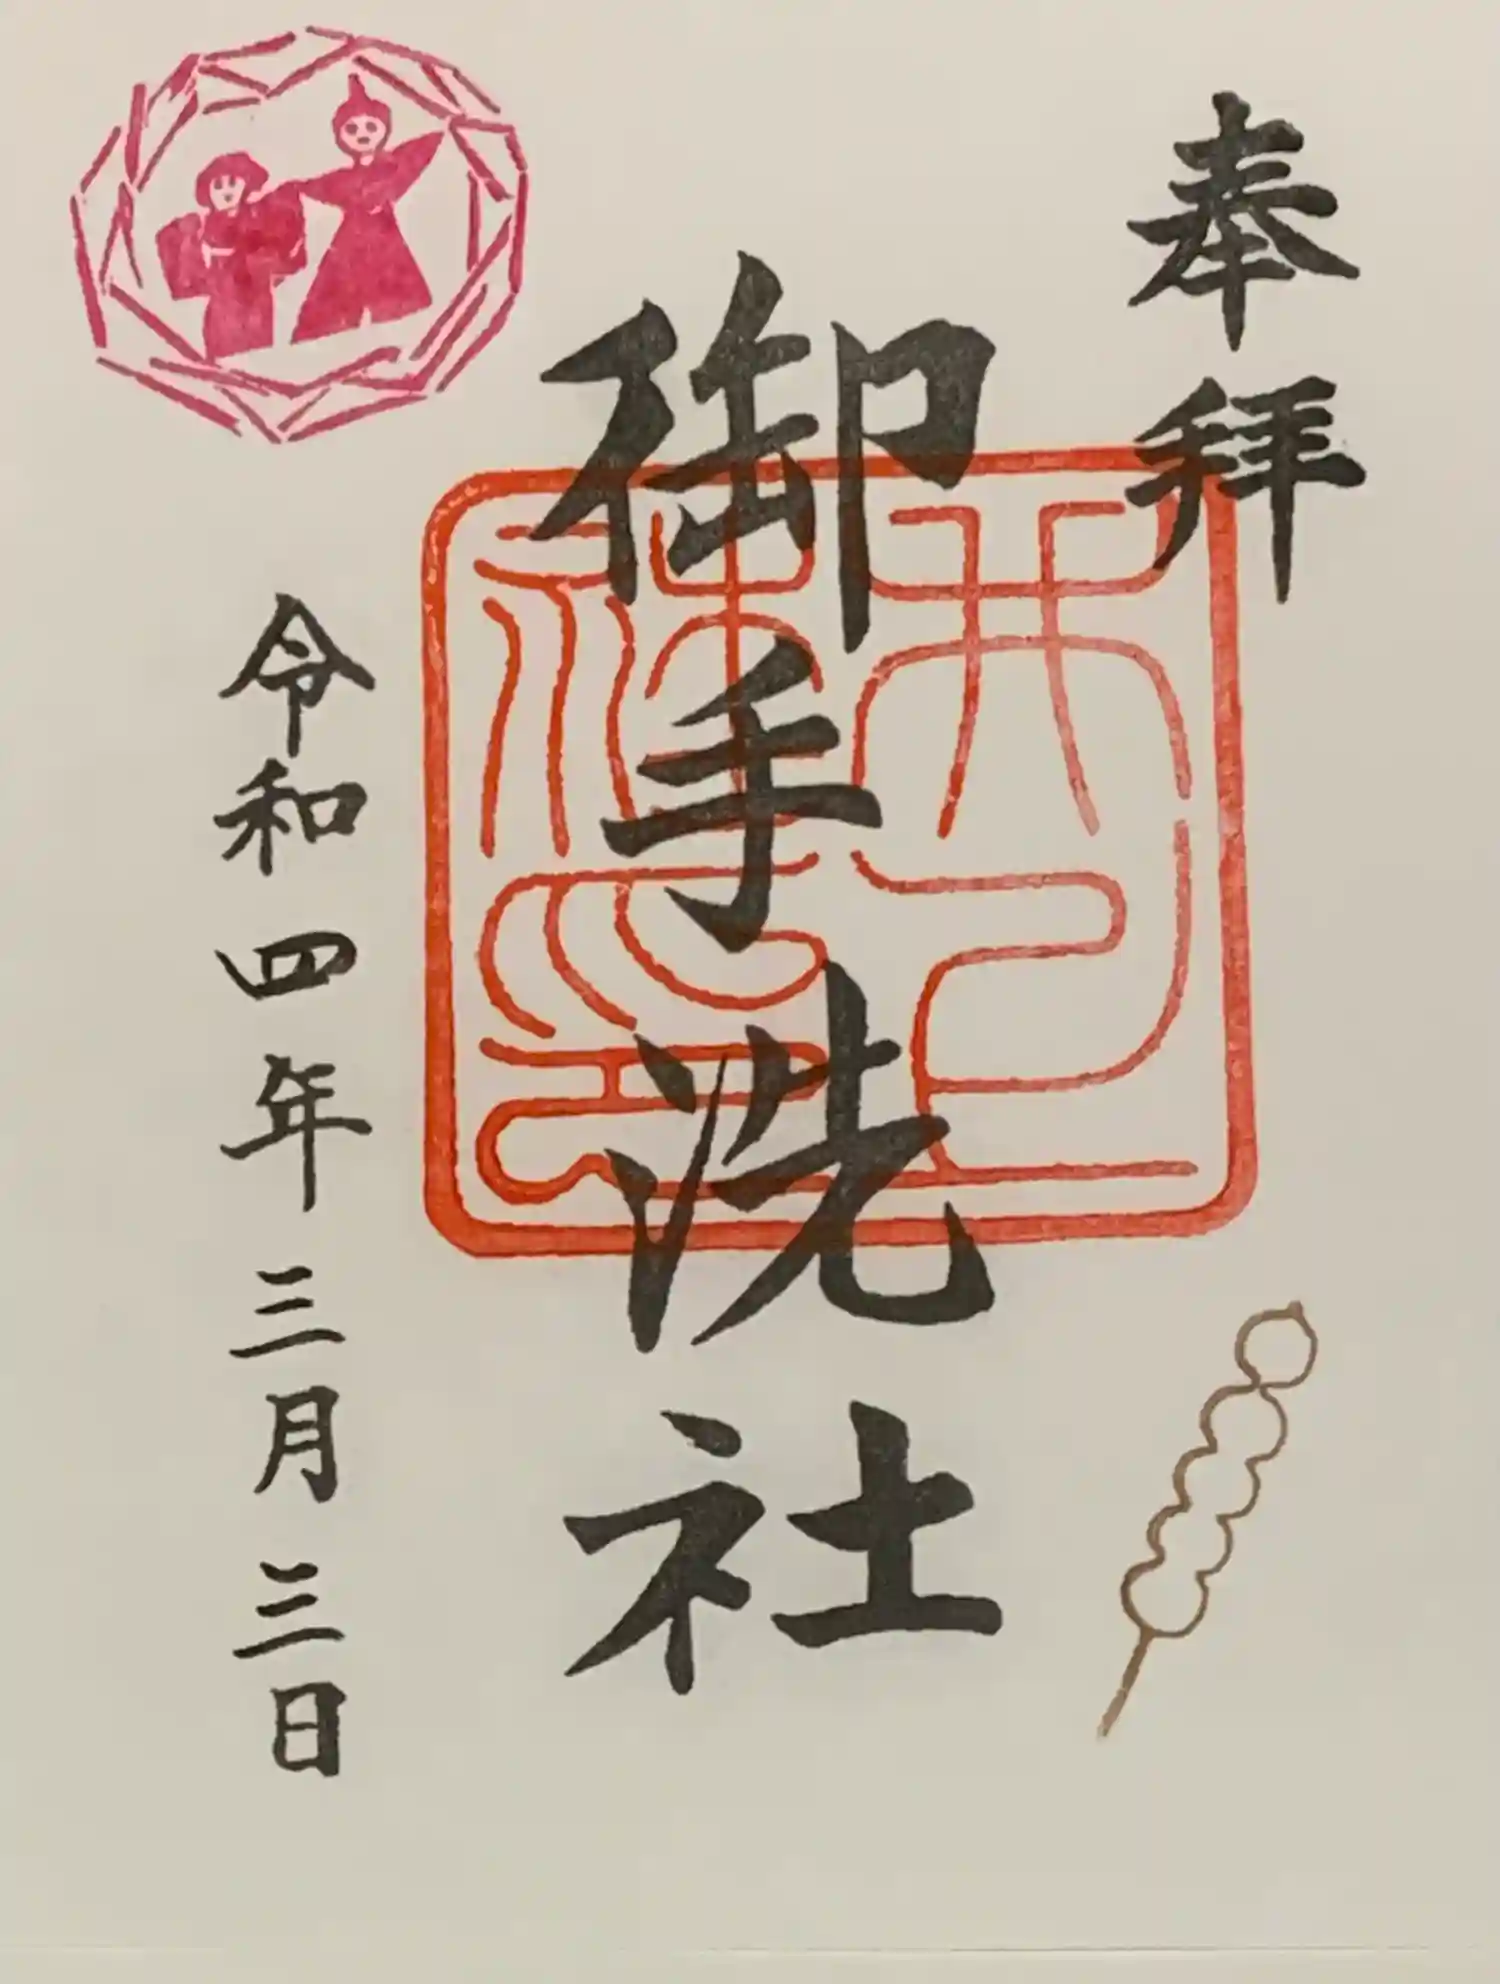 奉拝
御手洗社
令和四年三月三日